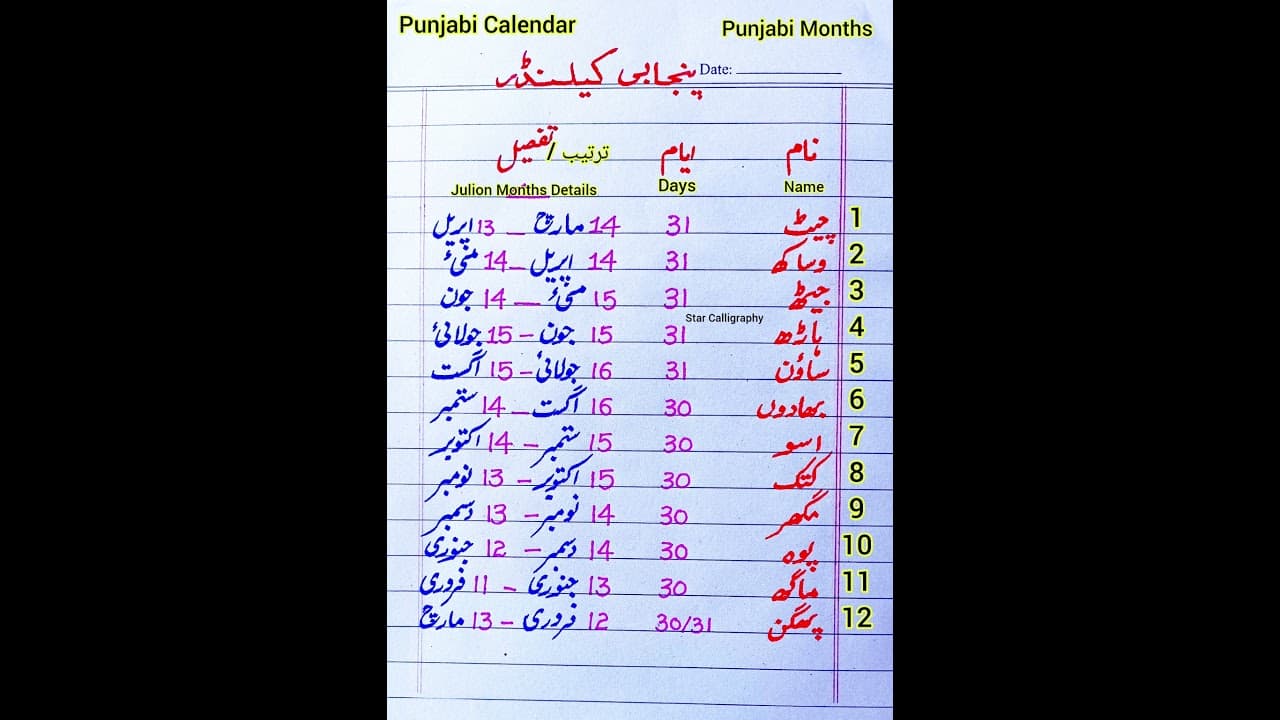 Punjabi Calendar Punjabi Months
پنجابی کیلنڈر Date:
نام ایام ترتیب / تفصیل
Name Days Julion Months Details
1 چیٹ 31 14 مارچ – 13 اپریل
2 وساکھ 31 14 اپریل – 14 مئی
3 جیٹھ 31 15 مئی – 14 جون
Star Calligraphy
4 ہاڑھ 31 15 جون – 15 جولائی
5 ساؤن 31 16 جولائی – 15 اگست
6 بھادوں 30 16 اگست – 14 ستمبر
7 اسو 30 15 ستمبر – 14 اکتوبر
8 کتک 30 15 اکتوبر – 13 نومبر
9 مگھر 30 14 نومبر – 13 دسمبر
10 پوہ 30 14 دسمبر – 12 جنوری
11 ماگھ 30 13 جنوری – 11 فروری
12 پھگن 30/31 12 فروری – 13 مارچ